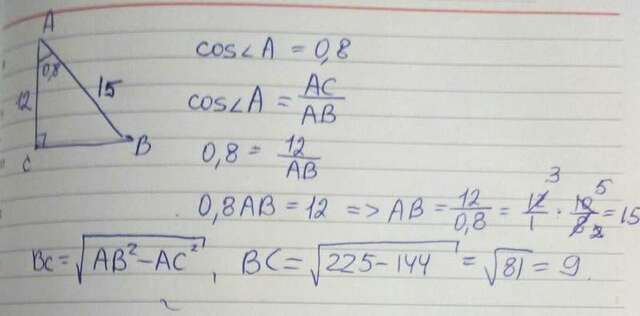 A
0,8
12
15
C
B
cos∠A = 0,8
cos∠A = AC/AB
0,8 = 12/AB
0,8AB = 12 => AB = 12/0,8 = 12/1 · 10/8 = 15
3 5 2
BC = √(AB² − AC²), BC = √(225 − 144) = √81 = 9